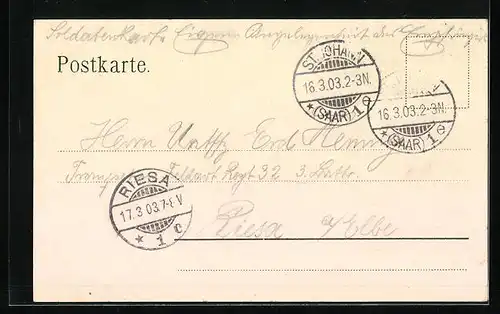 Soldatenkarte Eigene Angelegenheit des Empfängers
Postkarte.
ST. JOHANN
16.3.03.2-3N.
* (SAAR) 1 e
16.3.03.2-3N.
* (SAAR) 1 e
Herrn Utffz Erd
Feldart Regt 32 3. Battr.
RIESA
17.3.03.7-8V
* 1 c
Riesa a/Elbe